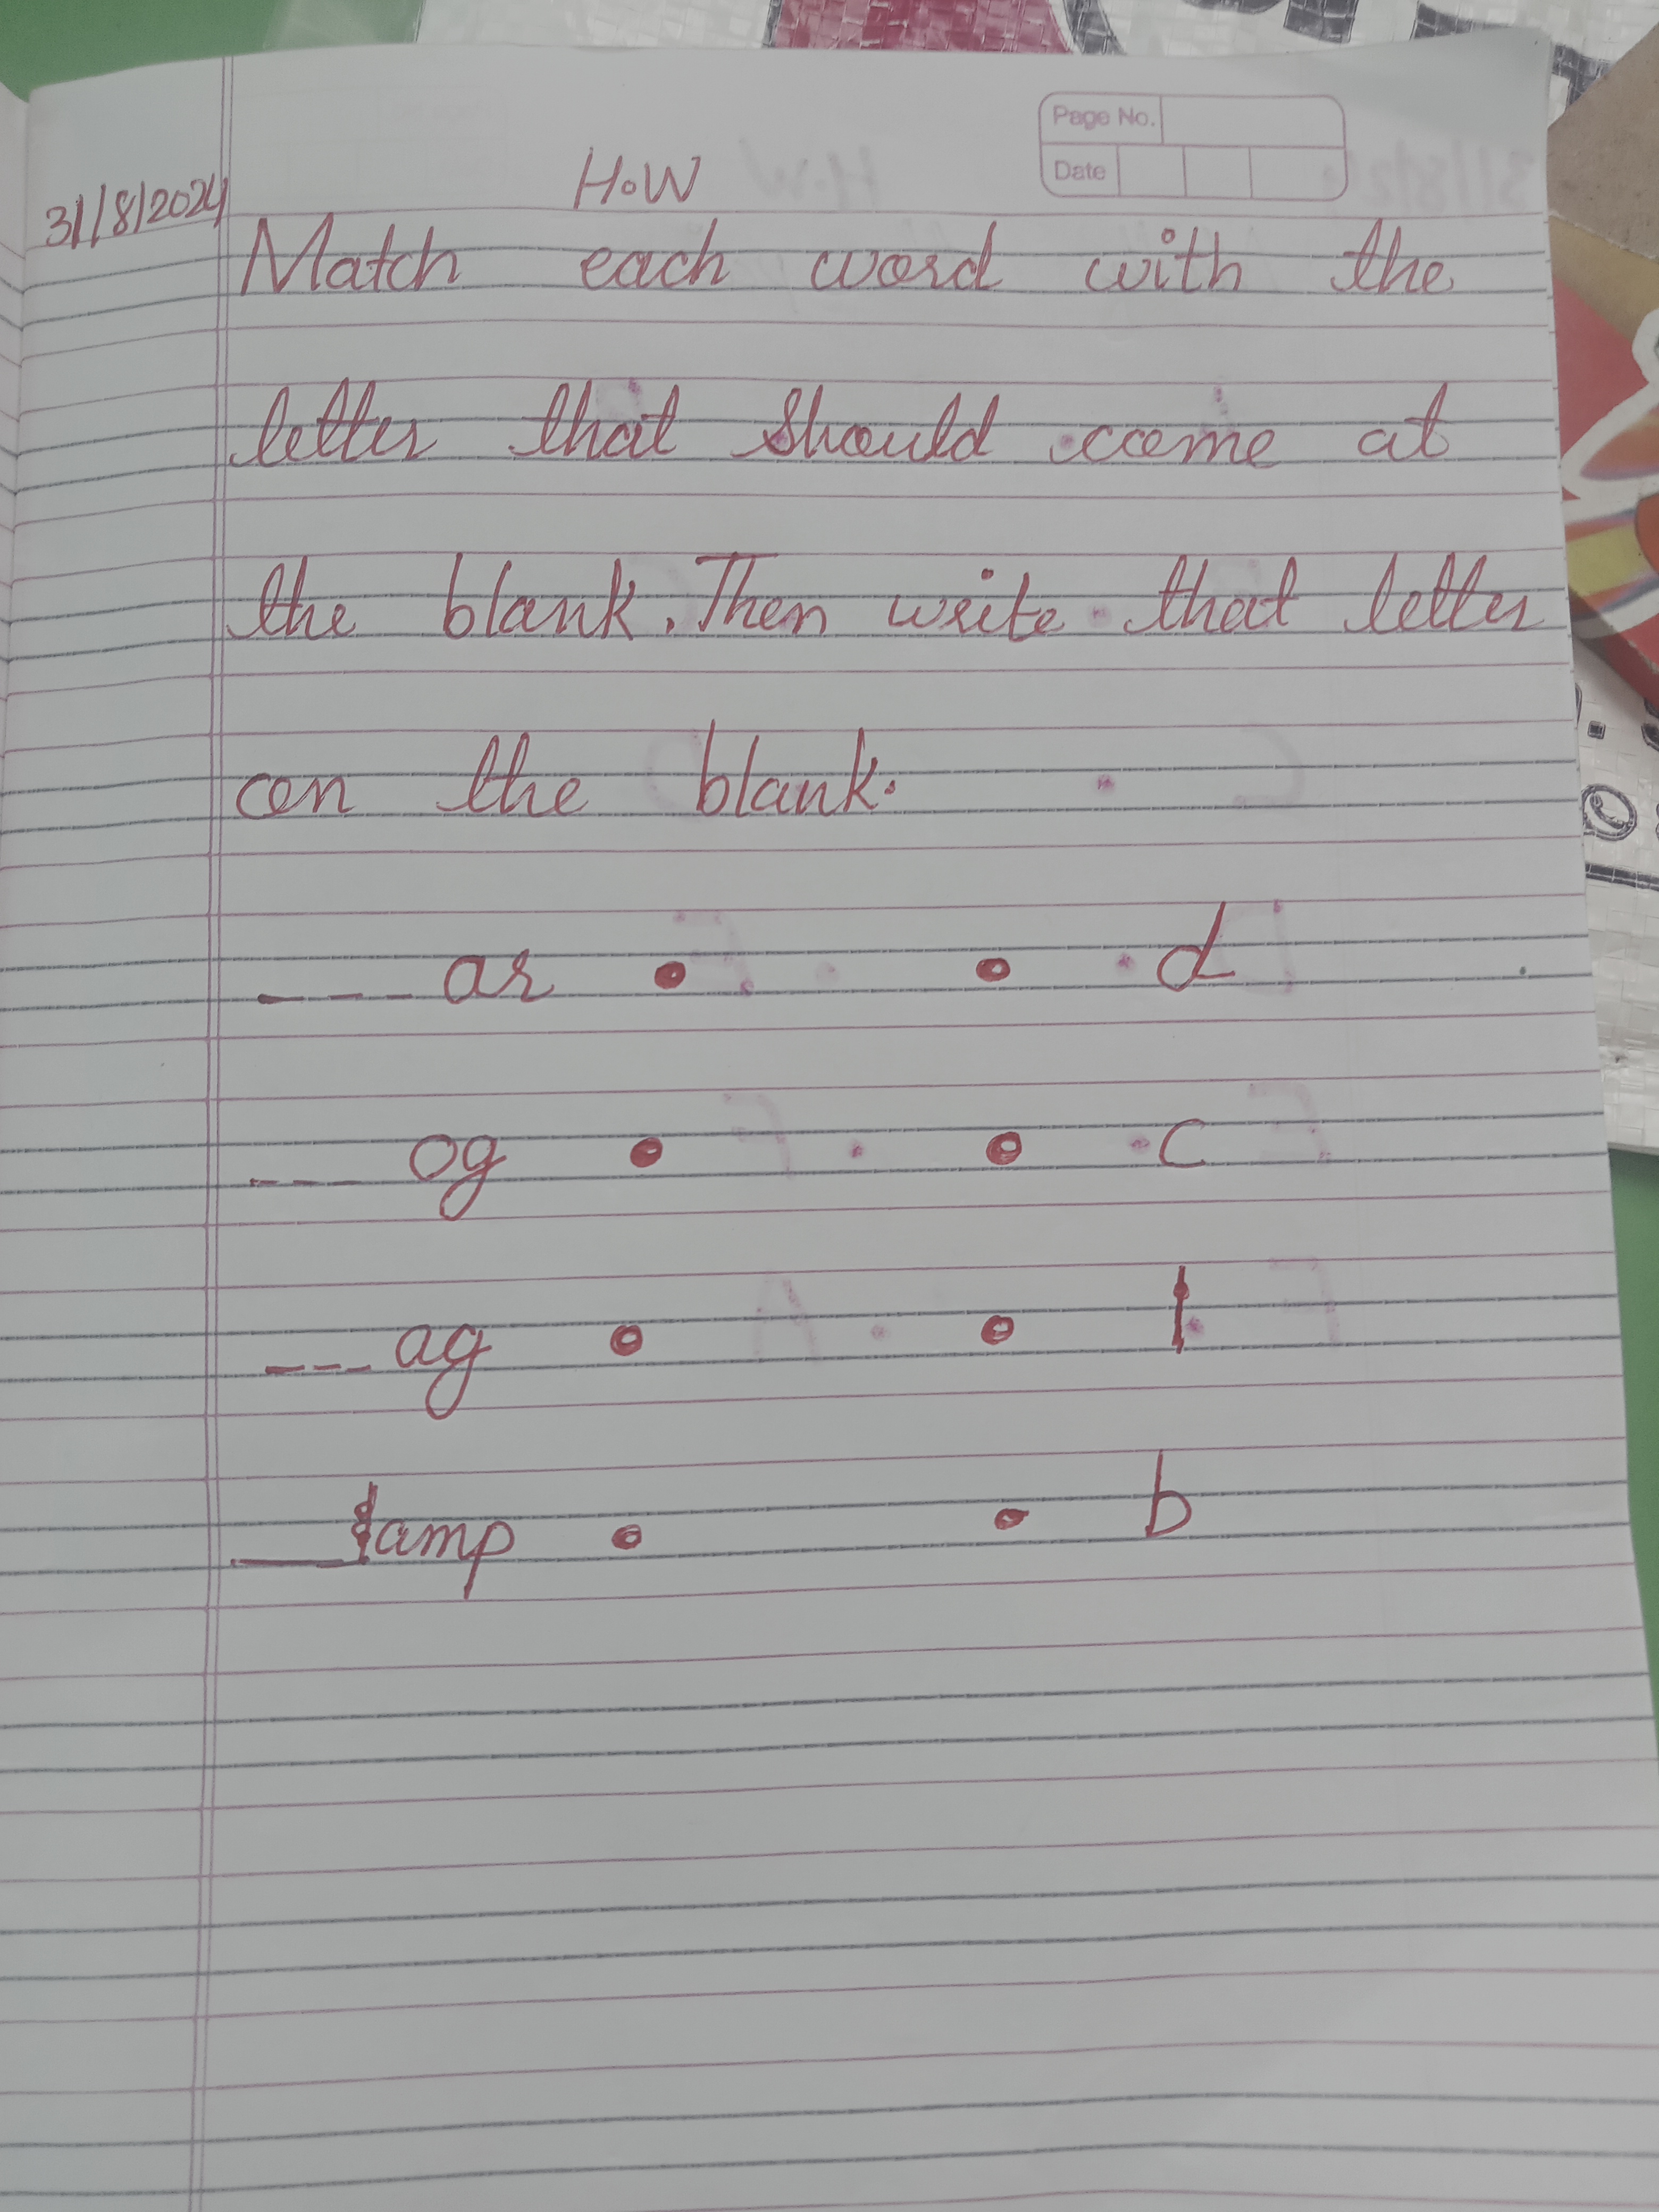 Page No.
Date
H.W
31/8/2024
Match each word with the
letter that should come at
the blank. Then write that letter
on the blank.
___ ar • • d
___ og • • c
___ ag • • l
___ amp • • b